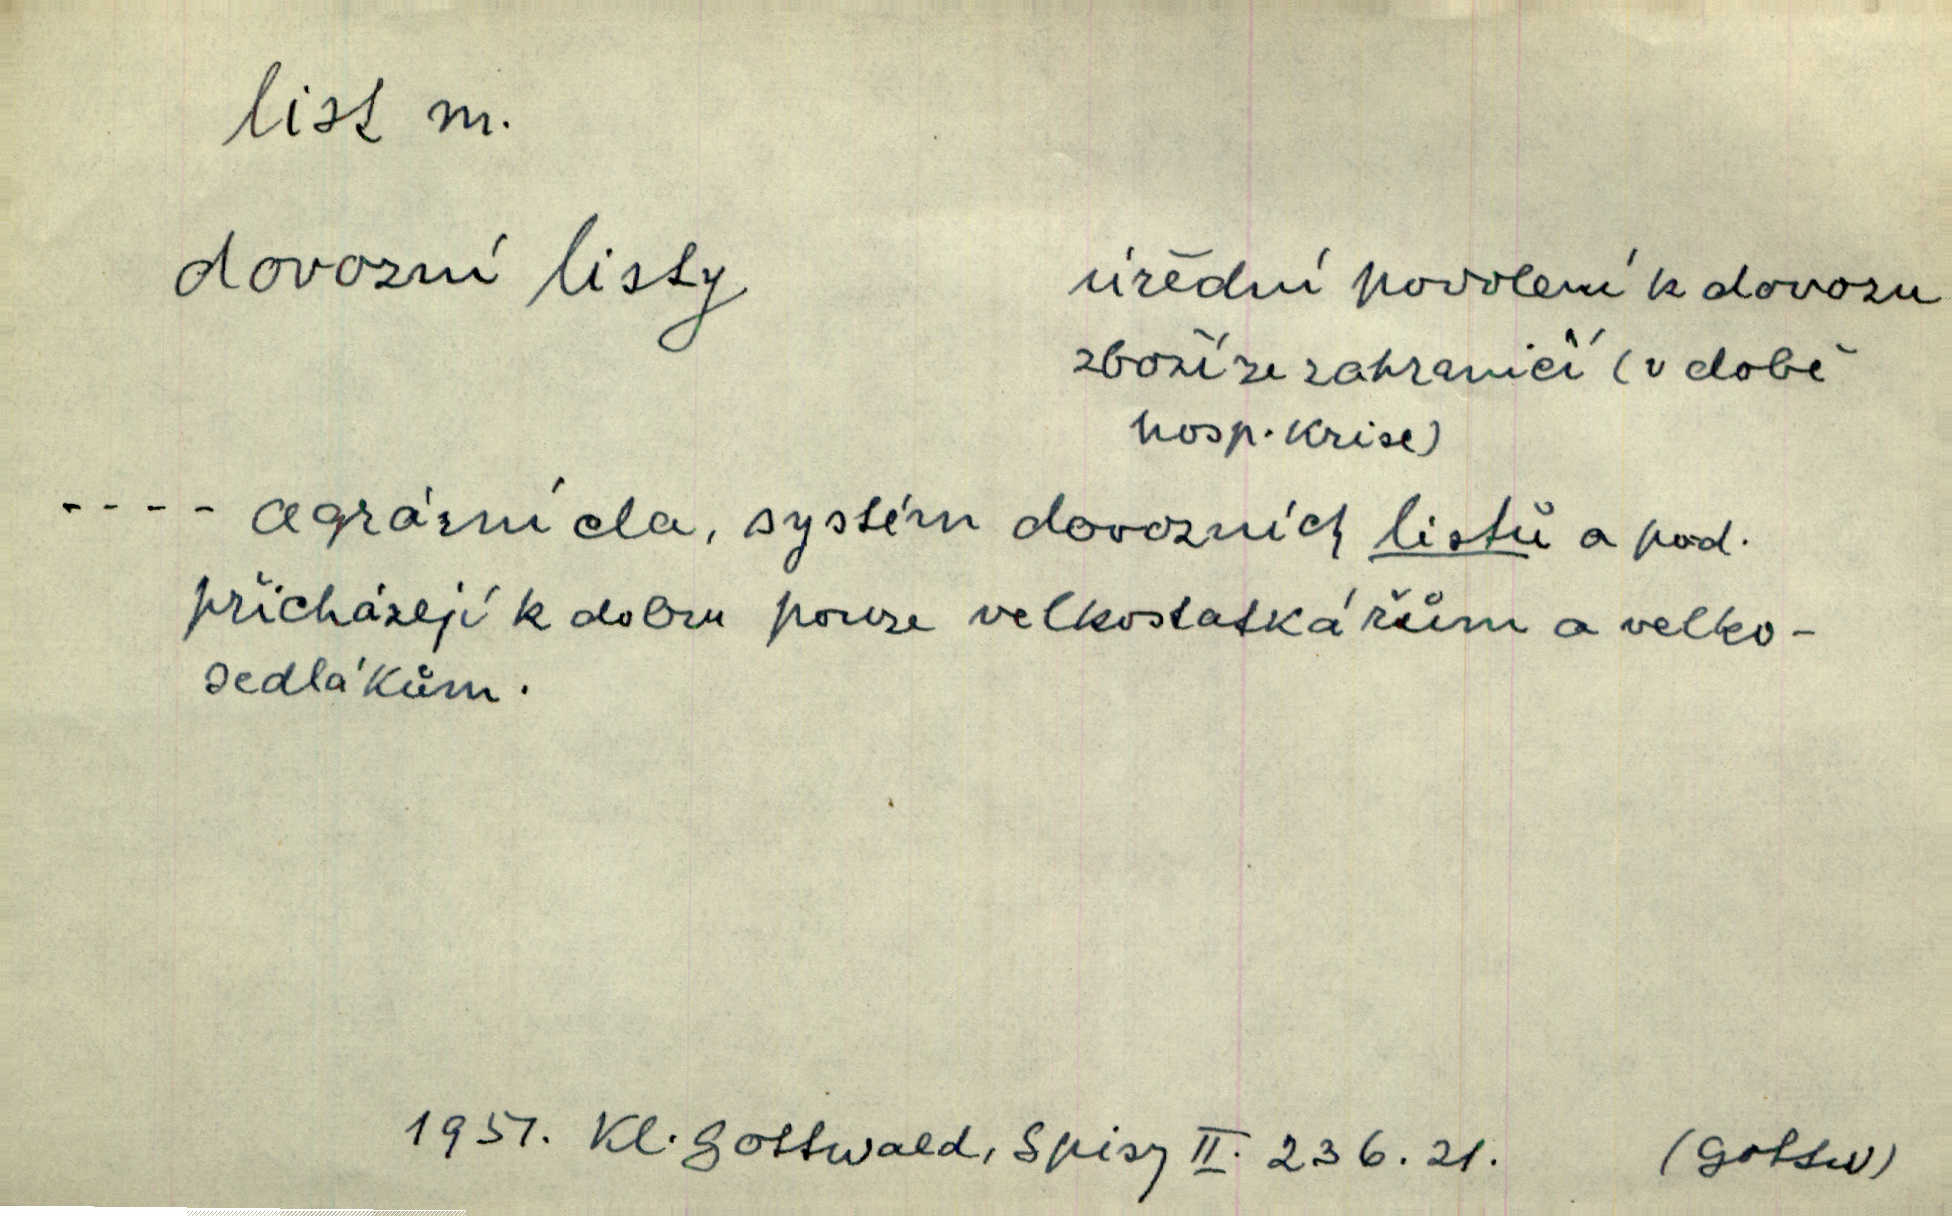 list m.
dovozní listy
úřední povolení k dovozu
zboží ze zahraničí (v době
hosp. krise)
---- agrární cla, systém dovozních listů a pod.
přicházejí k dobru pouze velkostatkářům a velko-
sedlákům.
1951. Kl. Gottwald, Spisy II. 236. 21. (Gottw)